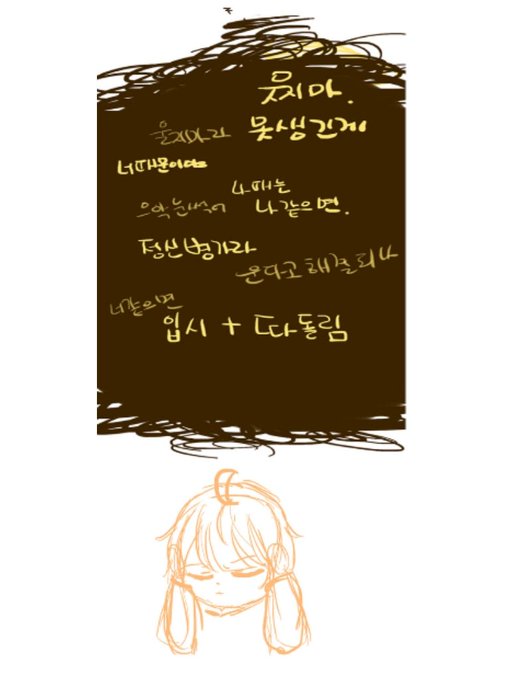 웃지마.
울지마라 못생긴게
너때문이야
나 때는
으악 눈썩어 나 같으면.
정신병가라
운다고 해결되냐
너같으면
입시 + 따돌림